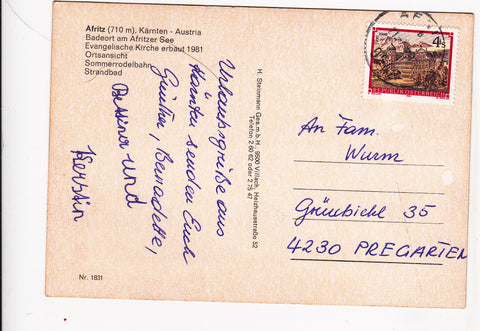 Afritz (710 m), Kärnten - Austria
Badeort am Afritzer See
Evangelische Kirche erbaut 1981
Ortsansicht
Sommerrodelbahn
Strandbad
Urlaubsgrüße aus
Kärnten senden Euch
Günther, Bernadette,
Bettina und
Kerstin
H. Steinmann Ges.m.b.H., 9500 Villach, Heizhausstraße 52
Telefon 2 60 62 oder 2 75 47
4 S
REPUBLIK ÖSTERREICH
An Fam.
Wurm
Grünbichl 35
4230 PREGARTEN
Nr. 1831